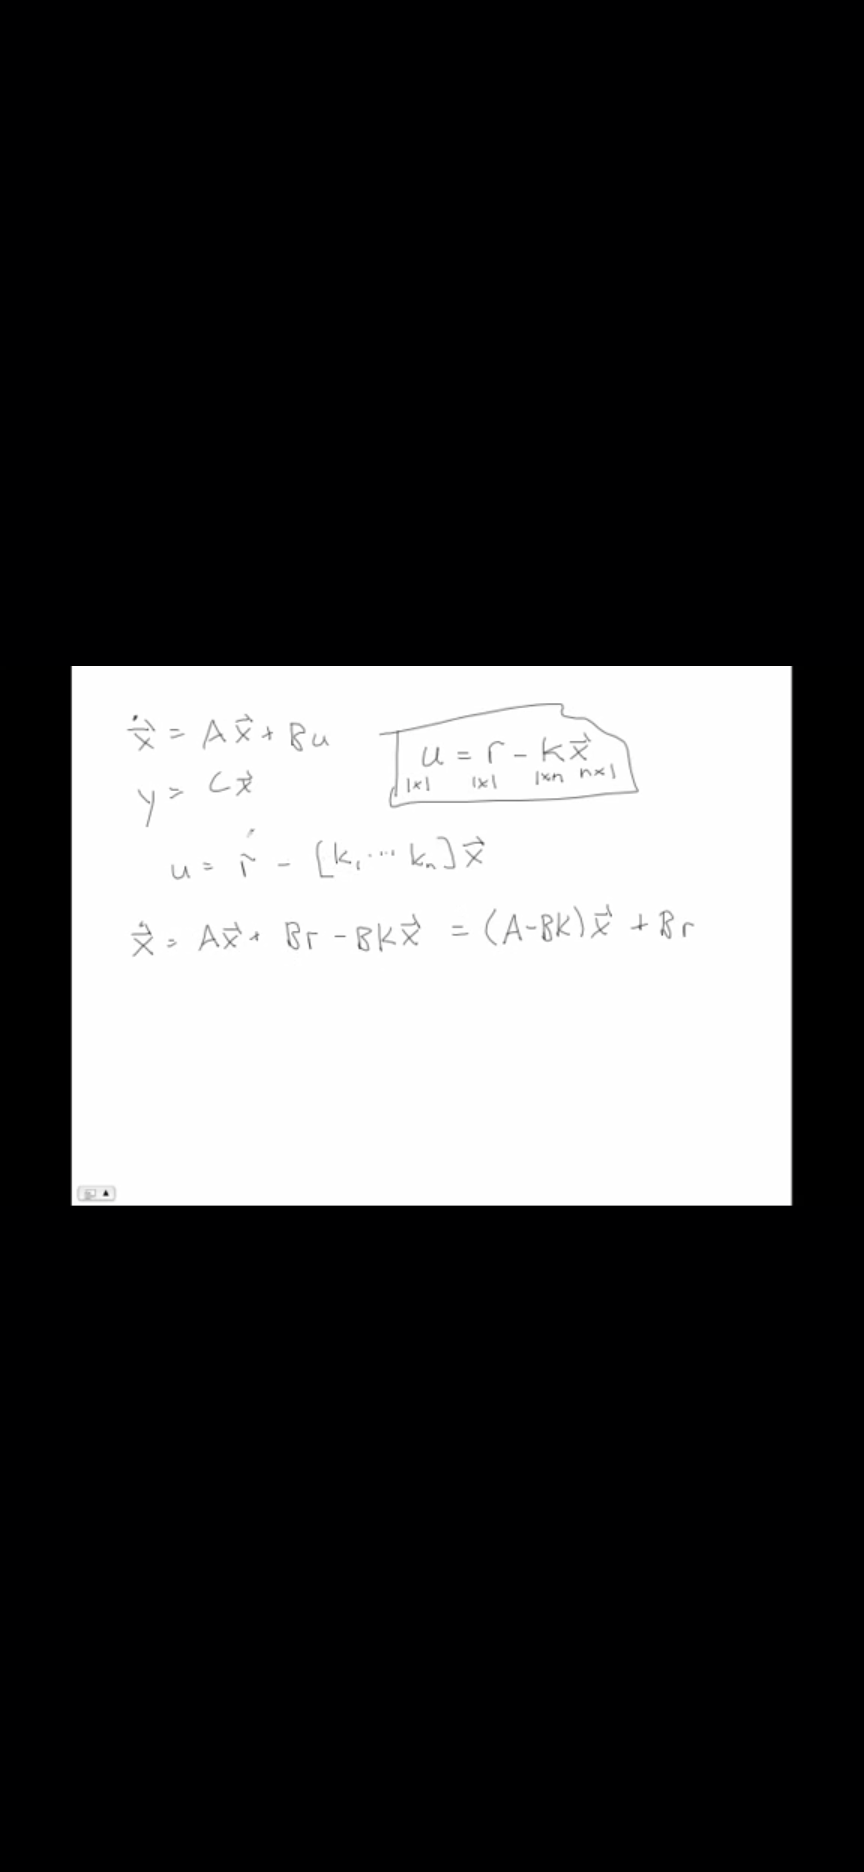 ẋ⃗ = Ax⃗ + Bu
y = Cx⃗
u = r - kx⃗
1×1 1×1 1×n n×1
u = r - [k₁ ... kₙ]x⃗
ẋ⃗ = Ax⃗ + Br - BKx⃗ = (A-BK)x⃗ + Br